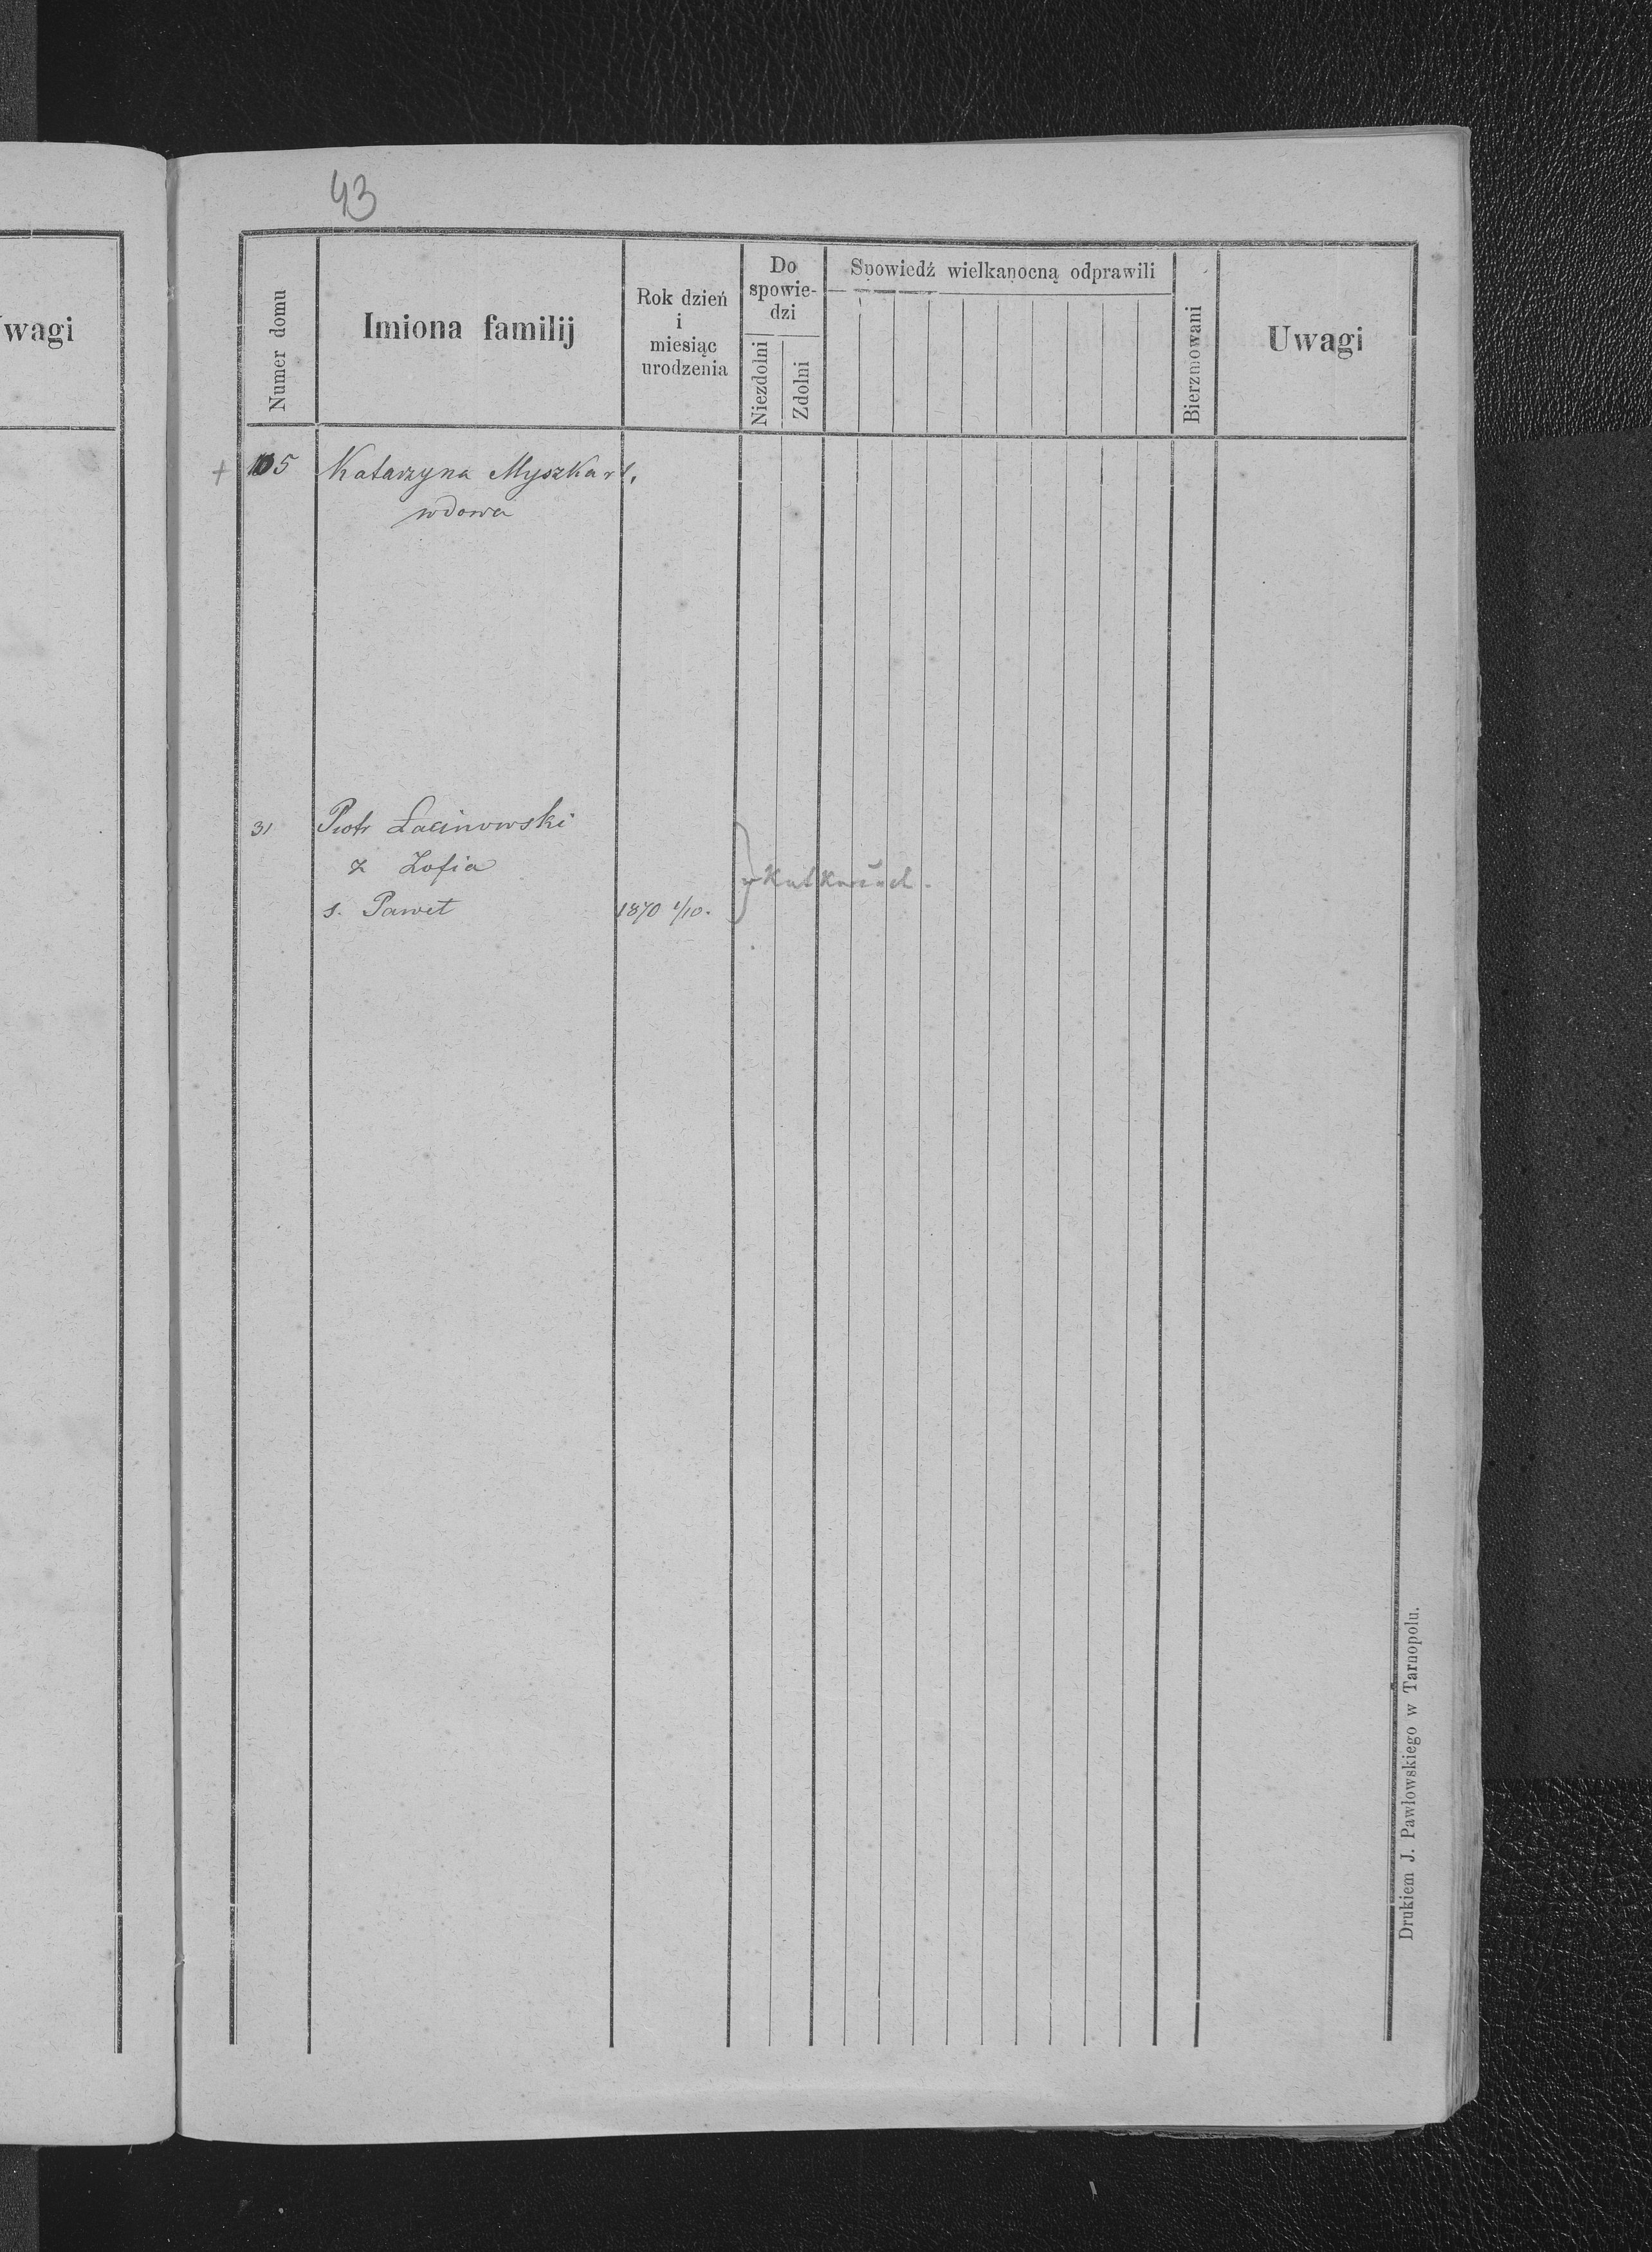 43
Uwagi
Numer domu
Imiona familij
Rok dzień
i
miesiąc
urodzenia
Do
spowie-
dzi
Niezdolni
Zdolni
Spowiedź wielkanocną odprawili
Bierzmowani
Uwagi
+ 105 Katarzyna
wdowa
31 Piotr Łacinowski
ż Zofia
s. Paweł 1870 1/10.
Drukiem J. Pawłowskiego w Tarnopolu.